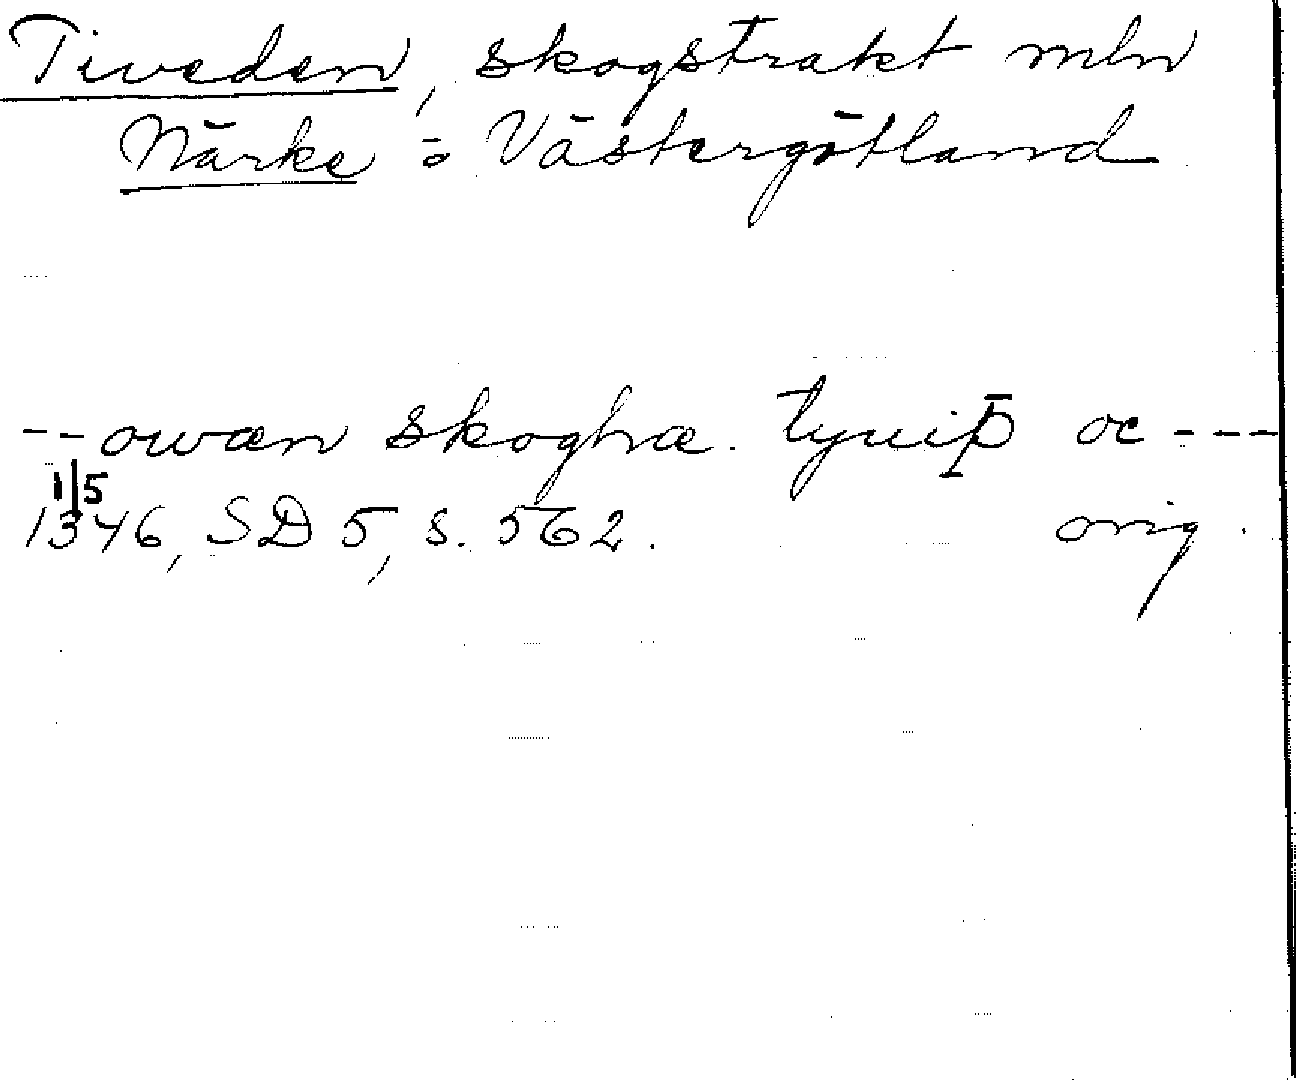 Tiveden, skogstrakt mln
Närke o Västergötland
--owæn skoghæ. tyuiþ oc ---
1/5
1346, SD 5, s. 562. orig.